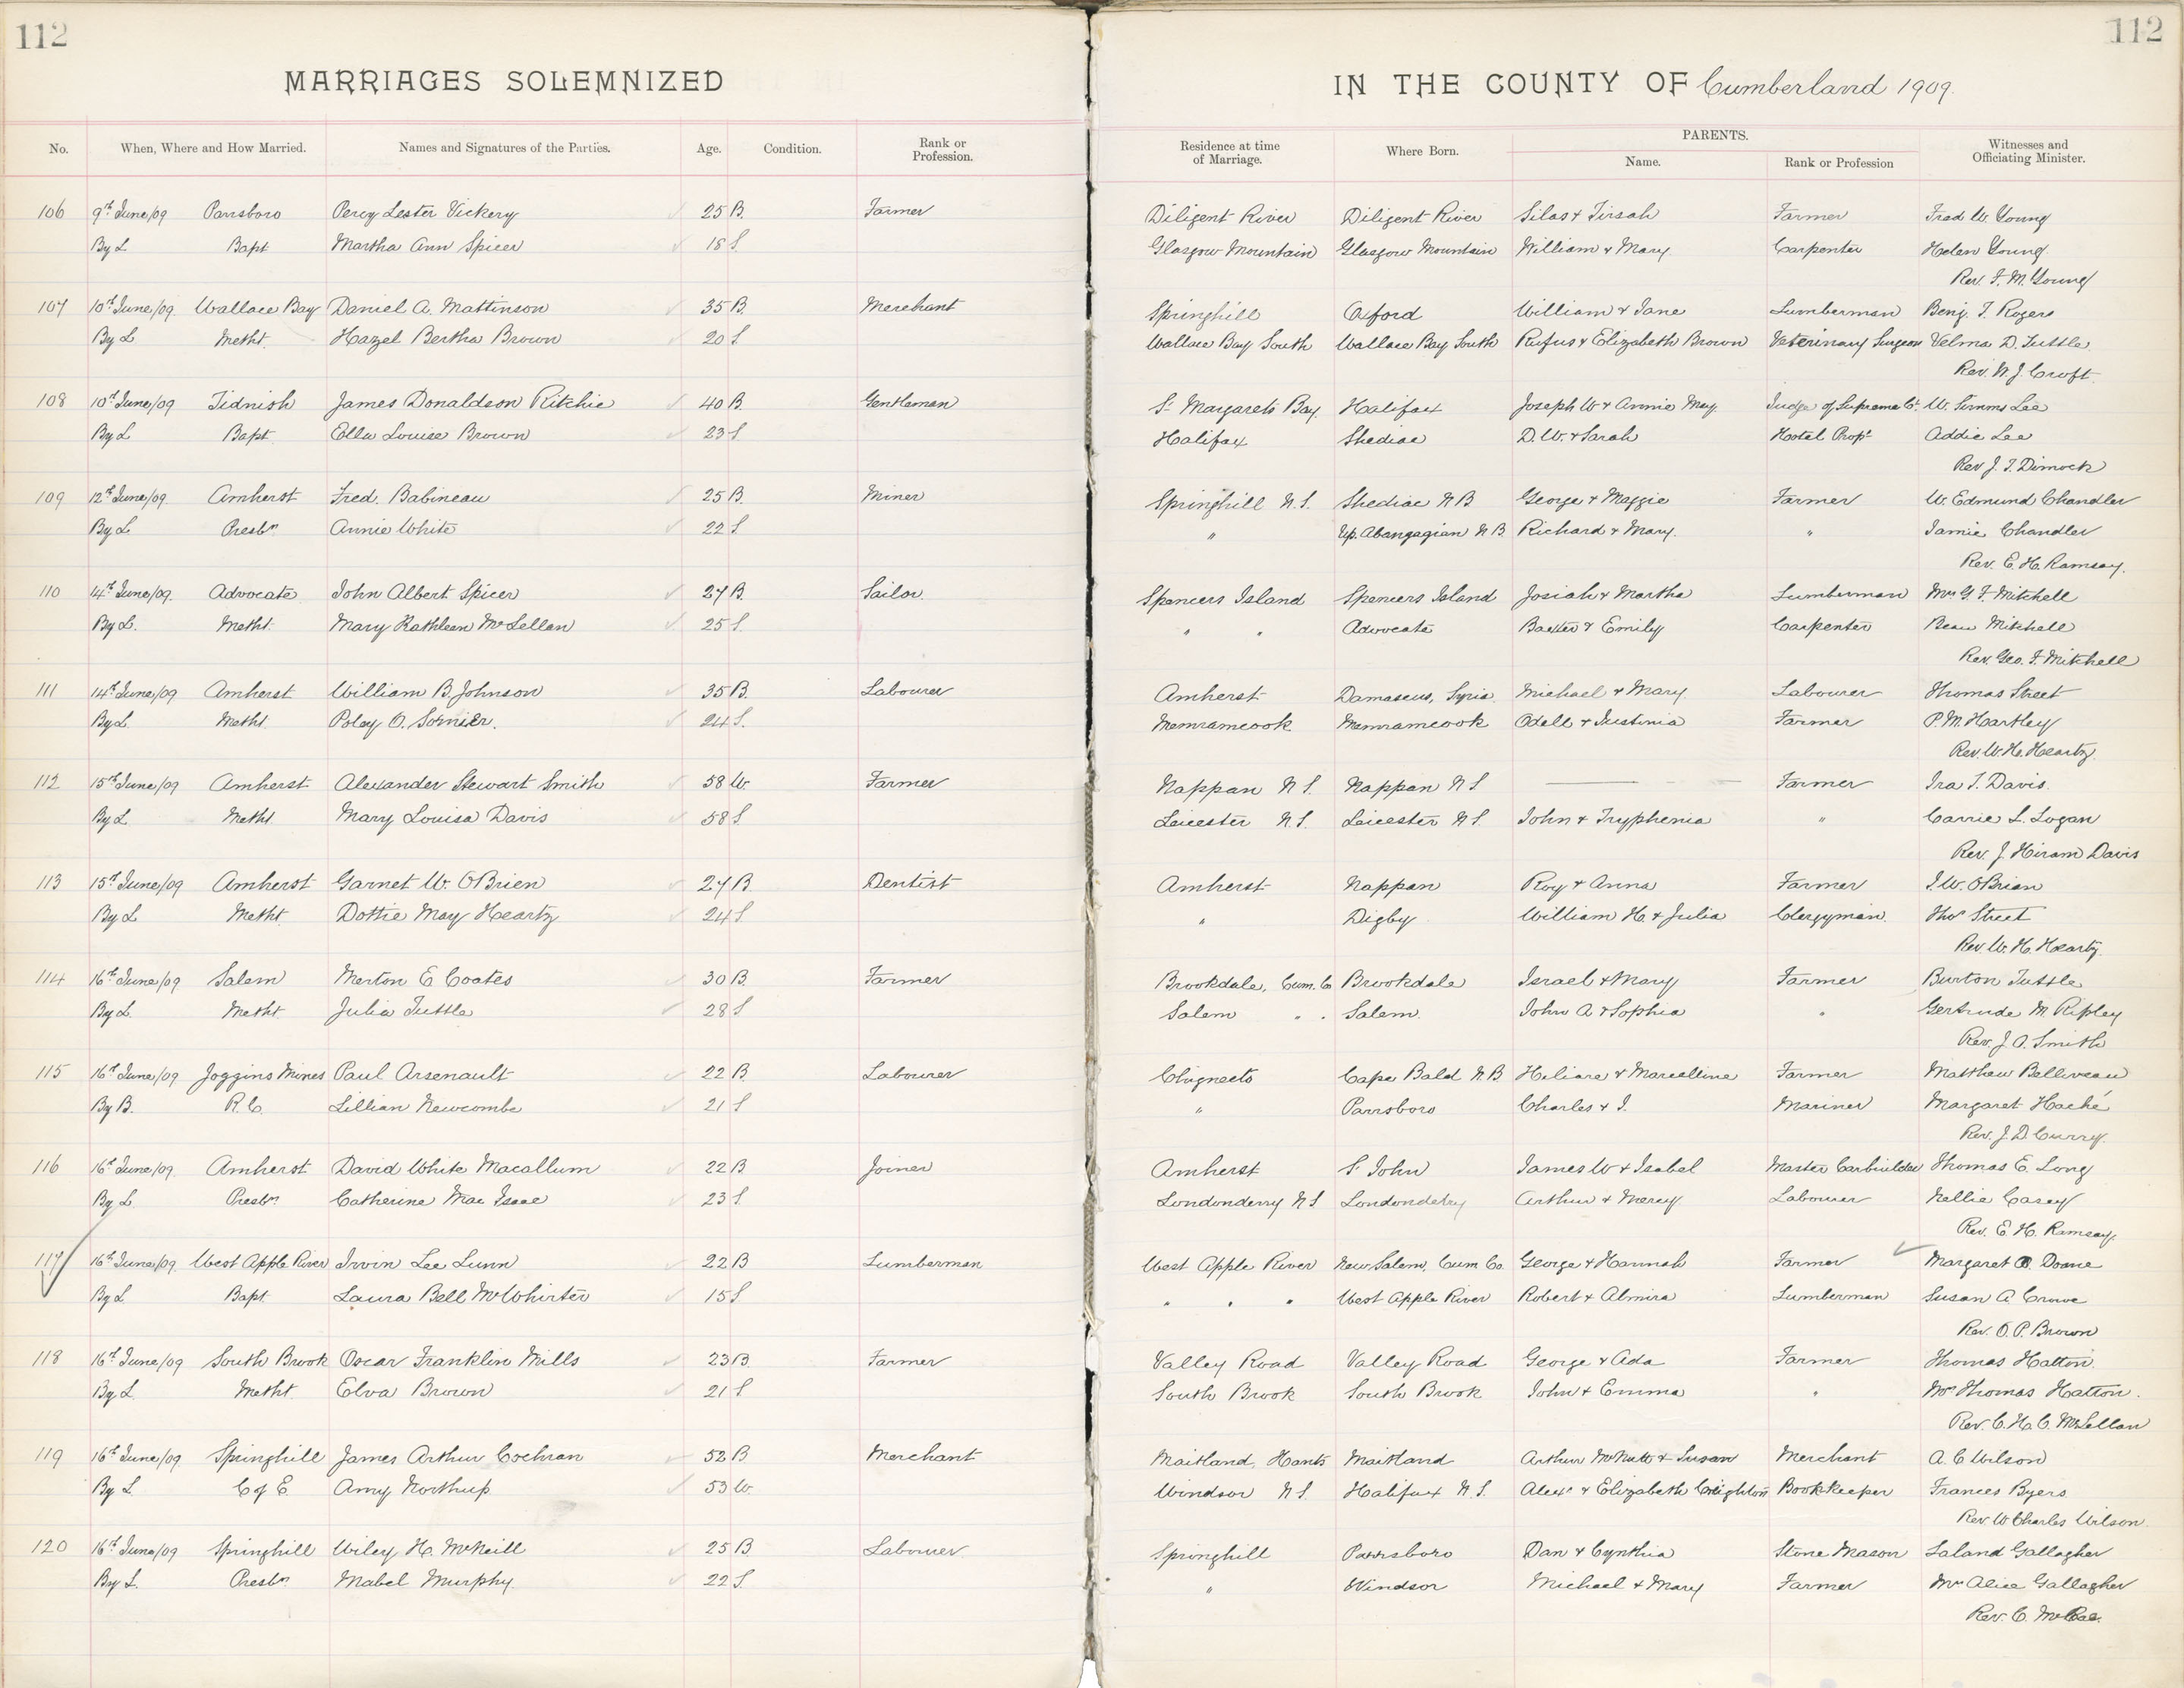 112
112
MARRIAGES SOLEMNIZED
IN THE COUNTY OF Cumberland 1909.
No. When, Where and How Married. Names and Signatures of the Parties. Age. Condition. Rank or Profession. Residence at time of Marriage. Where Born. PARENTS. Name. Rank or Profession Witnesses and Officiating Minister.
106 9th June/09 Parrsboro Percy Lester Vickery 25 B. Farmer Diligent River Diligent River Silas & Tirsah Farmer Fred W. Young
By L Bapt Martha Ann Spicer 18 S. Glasgow Mountain Glasgow Mountain William & Mary Carpenter Helen Young
Rev. F. M. Young
107 10th June/09 Wallace Bay Daniel A. Mattinson 35 B. Merchant Springhill Oxford William & Jane Lumberman Benj. T. Rogers
By L Metht. Hazel Bertha Brown 20 S Wallace Bay South Wallace Bay South Rufus & Elizabeth Brown Veterinary Surgeon Velma D. Tuttle
Rev. W. J. Croft.
108 10th June/09 Tidnish James Donaldson Ritchie 40 B. Gentleman St. Margarets Bay Halifax Joseph W & Annie May Judge of Supreme Ct. W. Simms Lee
By L Bapt. Ella Louise Brown 23 S. Halifax Shediac D. W. & Sarah Hotel Propt Addie Lee
Rev J. T. Dimock
109 12th June/09. Amherst Fred. Babineau 25 B. Miner Springhill N.S. Shediac N B George & Maggie Farmer W. Edmund Chandler
By L Presbn Annie White 22 S. " Up. Abangagian N B. Richard & Mary. " Jamie Chandler
Rev. E. H. Ramsay.
110 14th June/09. Advocate John Albert Spicer 27 B. Sailor. Spencers Island Spencers Island Josiah & Martha Lumberman Mrs G. F. Mitchell
By L. Metht. Mary Kathleen McLellan 25 S. " " Advocate Baxter & Emily Carpenter Mitchell
Rev. Geo. F. Mitchell
111 14th June/09 Amherst William B. Johnson 35 B. Labourer Amherst Damascus, Syria Michael & Mary. Labourer Thomas Street
By L. Metht. Poley O. Sornier. 24 S. Memramcook Memramcook Odell & Justinia Farmer P. M. Hartley
Rev. W. H. Heartz.
112 15th June/09 Amherst Alexander Stewart Smith 58 W. Farmer Nappan N S. Nappan N S — Farmer Ira T. Davis.
By L Metht Mary Louisa Davis 58 S. Leicester N.S. Leicester N S. John & Tryphenia " Carrie L. Logan
Rev. J. Hiram Davis
113 15th June/09 Amherst Garnet W. OBrien 27 B Dentist Amherst Nappan Roy & Anna Farmer J. W. OBrian
By L Metht. Dottie May Heartz 24 S. " Digby William H. & Julia Clergyman. Thos Street
Rev. W. H. Heartz.
114 16th June/09 Salem Merton E Coates 30 B. Farmer Brookdale, Cum. Co Brookdale Israel & Mary Farmer Burton Tuttle
By L Metht. Julia Tuttle 28 S Salem " " Salem. John A & Sophia " Gertrude M. Ripley
Rev. J. A. Smith
115 16th June/09 Joggins Mines Paul Arsenault 22 B. Labourer Chignecto Cape Bald N.B Hiliare & Marcelline Farmer Matthew Belliveau
By B. R.C. Lillian Newcombe 21 S " Parrsboro Charles & I. Mariner Margaret Haché
Rev. J. D. Curry.
116 16th June/09. Amherst David White Macallum 22 B Joiner Amherst St. John James W & Isabel Master Carbuilder Thomas E. Long
By L Presbn. Catherine Mac Isaac 23 S. Londonderry N S Londonderry Arthur & Mercy Labourer Nellie Casey
Rev. E. H. Ramsay.
117 16th June/09. West Apple River Irvin Lee Lunn 22 B Lumberman West Apple River New Salem, Cum Co. George & Hannah Farmer Margaret Doane
By L Bapt. Laura Bell McWhirter 15 S " " " West Apple River Robert & Almira Lumberman Susan A. Crowe
Rev. O. P. Brown
118 16th June/09 South Brook Oscar Franklin Mills 23 B. Farmer Valley Road Valley Road George & Ada Farmer Thomas Hatton.
By L Metht Elva Brown 21 S South Brook South Brook John & Emma " Mrs Thomas Hatton.
Rev. C. H. C. McLellan
119 16th June/09 Springhill James Arthur Cochran 52 B Merchant Maitland, Hants Maitland Arthur McNutt & Susan Merchant A. C Wilson
By L. C of E. Amy Northup. 53 W. Windsor N S. Halifax N. S. Alexr & Elizabeth Creighton Bookkeeper Frances Byers
Rev. W Charles Wilson.
120 16th June/09 Springhill Wiley H. McNeill 25 B Labourer Springhill Parrsboro Dan & Cynthia Stone Mason Laland Gallagher
By L. Presbn. Mabel Murphy. 22 S. " Windsor Michael & Mary Farmer Mrs Alice Gallagher
Rev. C. McRae.